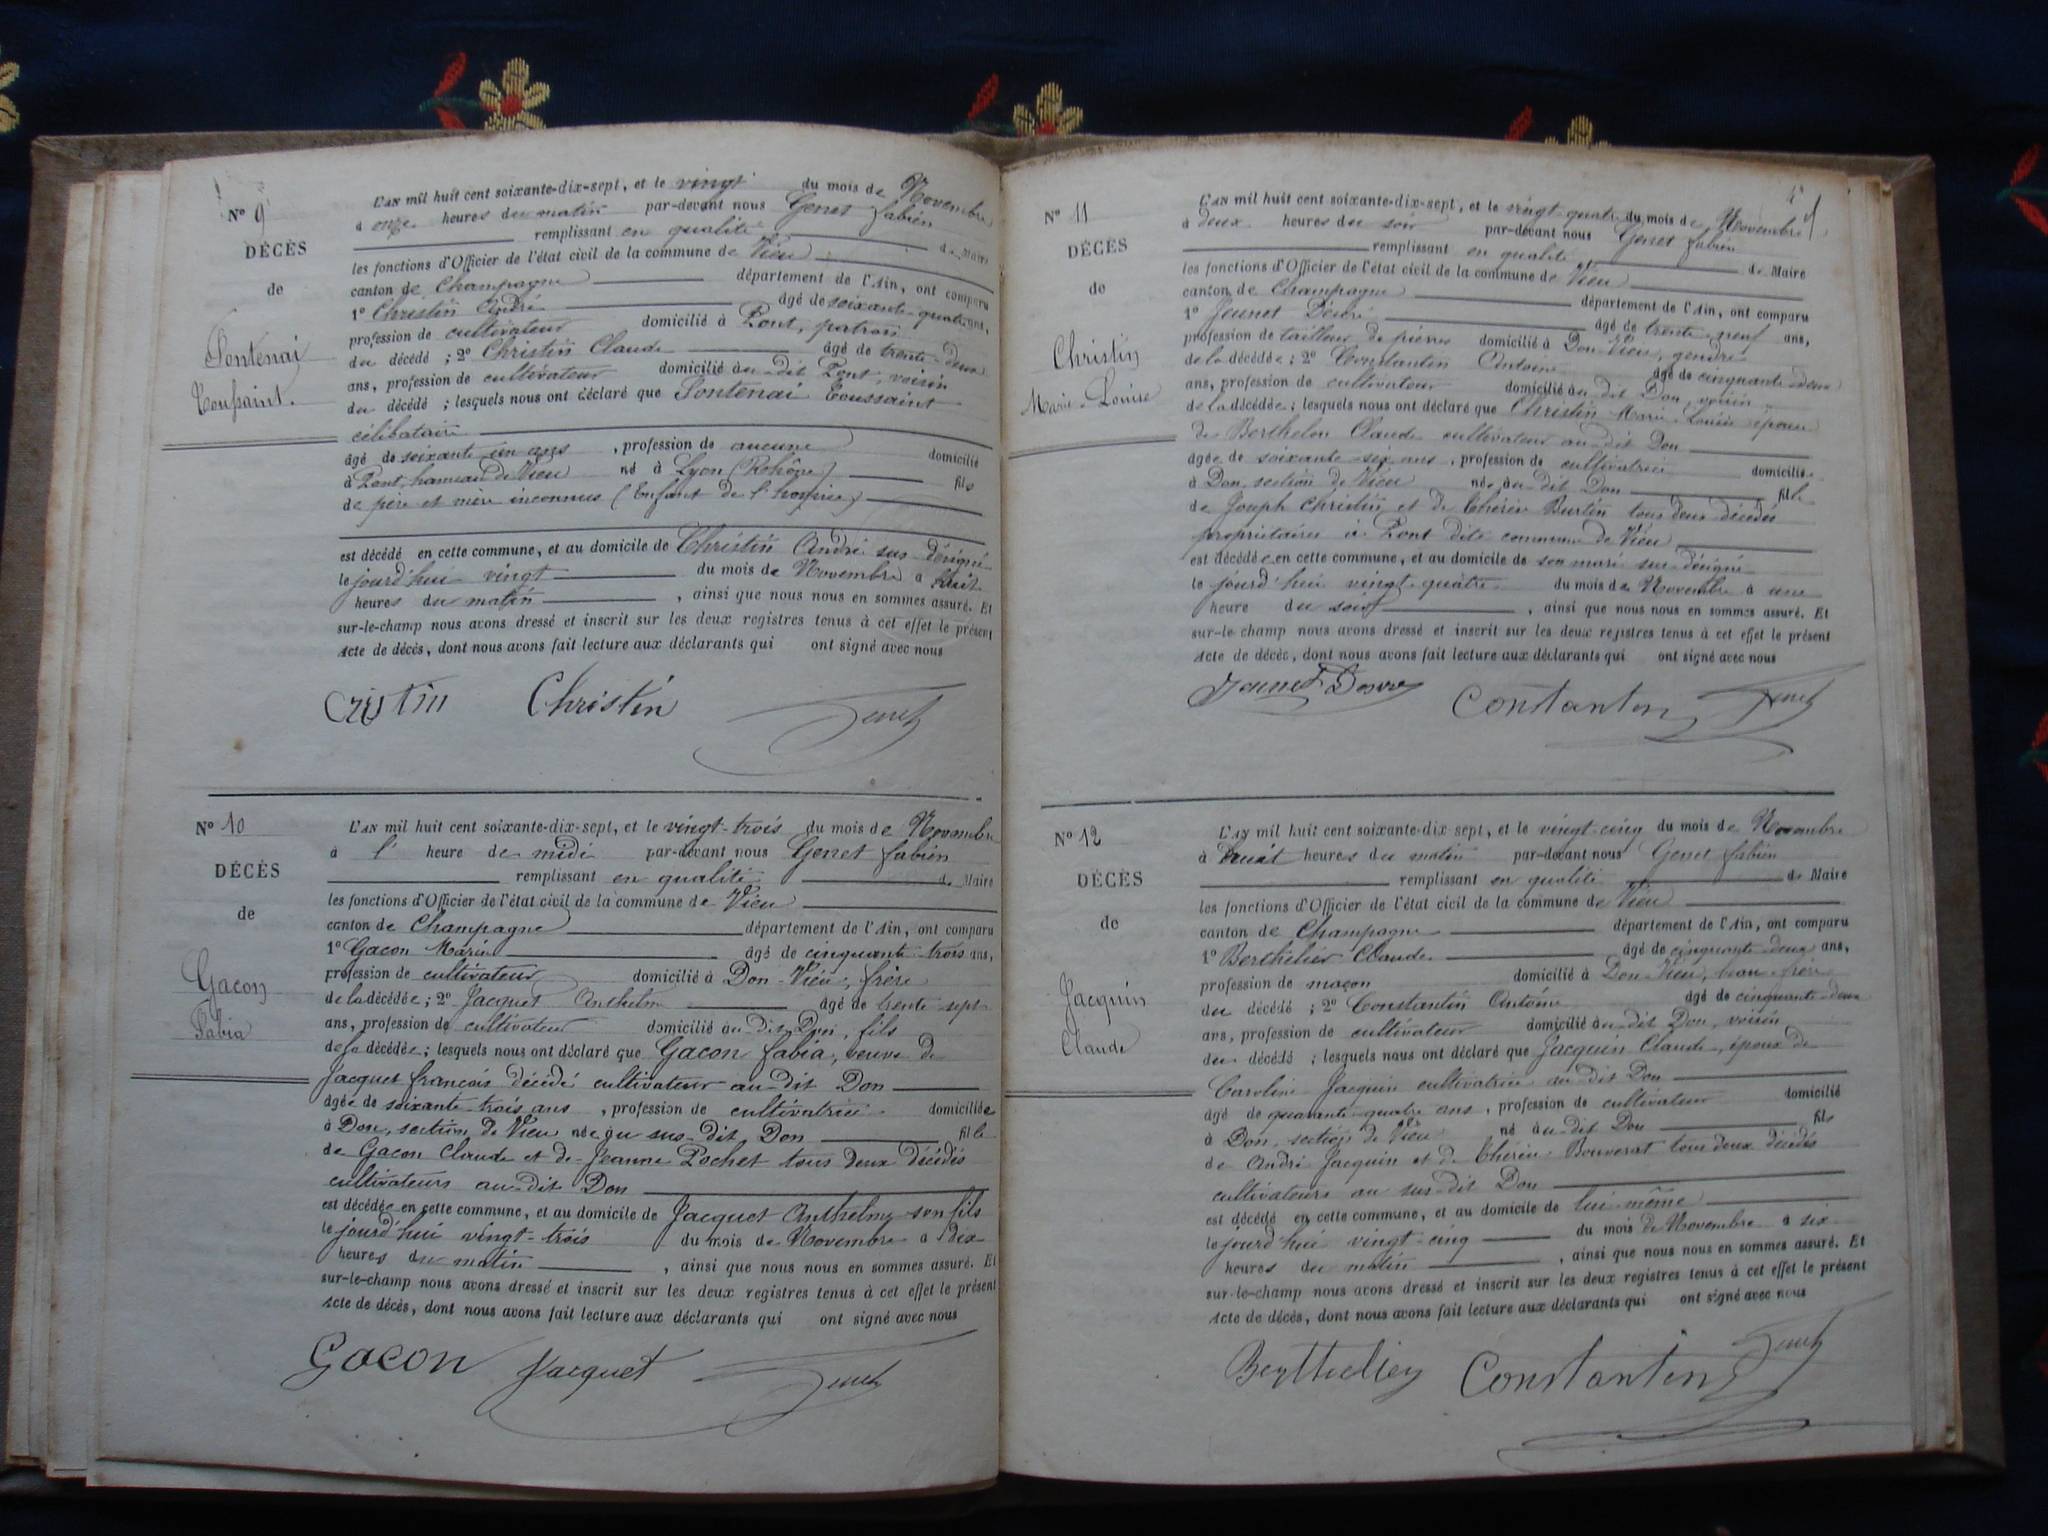 N° 9
DÉCÈS
de
Fontenai
Toussaint.
L'AN mil huit cent soixante-dix-sept, et le vingt du mois de Novembre
à onze heures du matin par-devant nous Genet fabien
remplissant en qualité de Maire
les fonctions d'Officier de l'état civil de la commune de Vieu
canton de Champagne département de l'Ain, ont comparu
1° Christin André âgé de soixante-quatre ans,
profession de cultivateur domicilié à Pont, patron
du décédé ; 2° Christin Claude âgé de trente-deux
ans, profession de cultivateur domicilié au-dit Pont, voisin
du décédé ; lesquels nous ont déclaré que Fontenai Toussaint
célibataire
âgé de soixante un ans , profession de aucune domicilié
à Pont, hameau de Vieu né à Lyon (Rhône) fils
de père et mère inconnus (Enfant de l'hospice)
est décédé en cette commune, et au domicile de Christin André sus-désigné
le jourd'hui vingt du mois de Novembre à huit
heures du matin , ainsi que nous nous en sommes assuré. Et
sur-le-champ nous avons dressé et inscrit sur les deux registres tenus à cet effet le présent
Acte de décès, dont nous avons fait lecture aux déclarants qui ont signé avec nous
Christin Genet
N° 10
DÉCÈS
de
Gacon
Fabia
L'AN mil huit cent soixante-dix-sept, et le vingt-trois du mois de Novembre
à l' heure de midi par-devant nous Genet fabien
remplissant en qualité de Maire
les fonctions d'Officier de l'état civil de la commune de Vieu
canton de Champagne département de l'Ain, ont comparu
1° Gacon Marin âgé de cinquante-trois ans,
profession de cultivateur domicilié à Don-Vieu, frère
de la décédée ; 2° Jacquet Anthelme âgé de trente-sept
ans, profession de cultivateur domicilié au-dit Don, fils
de la décédée ; lesquels nous ont déclaré que Gacon fabia, veuve de
Jacquet françois décédé cultivateur au-dit Don
âgée de soixante-trois ans , profession de cultivatrice domiciliée
à Don, section de Vieu née au sus-dit Don fille
de Gacon Claude et de Jeanne Pochet tous deux décédés
cultivateurs au-dit Don
est décédée en cette commune, et au domicile de Jacquet Anthelme son fils
le jourd'hui vingt-trois du mois de Novembre à dix
heures du matin , ainsi que nous nous en sommes assuré. Et
sur-le-champ nous avons dressé et inscrit sur les deux registres tenus à cet effet le présent
Acte de décès, dont nous avons fait lecture aux déclarants qui ont signé avec nous
Gacon Jacquet Genet
N° 11
DÉCÈS
de
Christin
Marie-Louise
L'AN mil huit cent soixante-dix-sept, et le vingt-quatre du mois de Novembre
à deux heures du soir par-devant nous Genet fabien
remplissant en qualité de Maire
les fonctions d'Officier de l'état civil de la commune de Vieu
canton de Champagne département de l'Ain, ont comparu
1° Jeunet Désiré âgé de trente-neuf ans,
profession de tailleur de pierres domicilié à Don-Vieu, gendre
de la décédée ; 2° Constantin Antoine âgé de cinquante-deux
ans, profession de cultivateur domicilié au dit Don, voisin
de la décédée ; lesquels nous ont déclaré que Christin Marie-Louise épouse
de Berthelon Claude cultivateur au-dit Don
âgée de soixante-six ans , profession de cultivatrice domiciliée
à Don, section de Vieu née au-dit Don fille
de Joseph Christin et de Thérèse Burtin tous deux décédés
propriétaires à Pont dite commune de Vieu
est décédée en cette commune, et au domicile de son mari sus-désigné
le jourd'hui vingt-quatre du mois de Novembre à une
heure du soir , ainsi que nous nous en sommes assuré. Et
sur-le-champ nous avons dressé et inscrit sur les deux registres tenus à cet effet le présent
Acte de décès, dont nous avons fait lecture aux déclarants qui ont signé avec nous
Constantin Genet
N° 12
DÉCÈS
de
Jacquin
Claude
L'AN mil huit cent soixante-dix-sept, et le vingt-cinq du mois de Novembre
à huit heures du matin par-devant nous Genet fabien
remplissant en qualité de Maire
les fonctions d'Officier de l'état civil de la commune de Vieu
canton de Champagne département de l'Ain, ont comparu
1° Berthelier Claude âgé de cinquante-deux ans,
profession de maçon domicilié à Don-Vieu, beau-frère
du décédé ; 2° Constantin Antoine âgé de cinquante-deux
ans, profession de cultivateur domicilié au-dit Don, voisin
du décédé ; lesquels nous ont déclaré que Jacquin Claude, époux de
Caroline Jacquin cultivatrice au-dit Don
âgé de quarante-quatre ans , profession de cultivateur domicilié
à Don, section de Vieu né au-dit Don fils
de André Jacquin et de Thérèse Bouverat tous deux décédés
cultivateurs au sus-dit Don
est décédé en cette commune, et au domicile de lui-même
le jourd'hui vingt-cinq du mois de Novembre à six
heures du matin , ainsi que nous nous en sommes assuré. Et
sur-le-champ nous avons dressé et inscrit sur les deux registres tenus à cet effet le présent
Acte de décès, dont nous avons fait lecture aux déclarants qui ont signé avec nous
Berthelier Constantin Genet